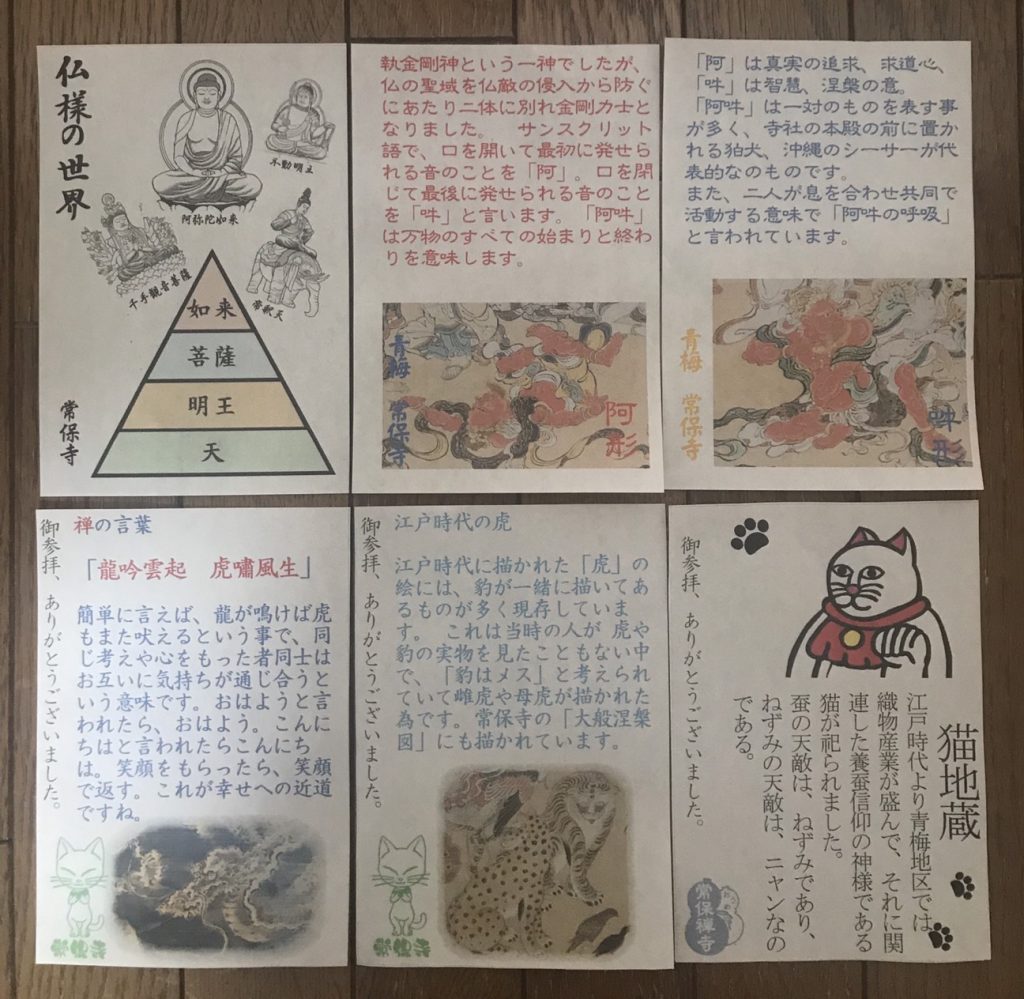 仏様の世界
阿弥陀如来
不動明王
千手観音菩薩
帝釈天
如来
菩薩
明王
天
常保寺
執金剛神という一神でしたが、
仏の聖域を仏敵の侵入から防ぐ
にあたり二体に別れ金剛力士と
なりました。　サンスクリット
語で、口を開いて最初に発せら
れる音のことを「阿」。口を閉
じて最後に発せられる音のこと
を「吽」と言います。「阿吽」
は万物のすべての始まりと終わ
りを意味します。
青梅　常保寺
阿形
「阿」は真実の追求、求道心、
「吽」は智慧、涅槃の意。
「阿吽」は一対のものを表す事
が多く、寺社の本殿の前に置か
れる狛犬、沖縄のシーサーが代
表的なのものです。
また、二人が息を合わせ共同で
活動する意味で「阿吽の呼吸」
と言われています。
青梅　常保寺
吽形
御参拝、ありがとうございました。
禅の言葉
「龍吟雲起　虎嘯風生」
簡単に言えば、龍が鳴けば虎
もまた吠えるという事で、同
じ考えや心をもった者同士は
お互いに気持ちが通じ合うと
いう意味です。おはようと言
われたら、おはよう。こんに
ちはと言われたらこんにち
は。笑顔をもらったら、笑顔
で返す。これが幸せへの近道
ですね。
常保寺
御参拝、ありがとうございました。
江戸時代の虎
江戸時代に描かれた「虎」の
絵には、豹が一緒に描いてあ
るものが多く現存していま
す。　これは当時の人が 虎や
豹の実物を見たこともない中
で、「豹はメス」と考えられ
ていて雌虎や母虎が描かれた
為です。常保寺の「大般涅槃
図」にも描かれています。
常保寺
御参拝、ありがとうございました。
猫地蔵
江戸時代より青梅地区では
織物産業が盛んで、それに関
連した養蚕信仰の神様である
猫が祀られました。
蚕の天敵は、ねずみであり、
ねずみの天敵は、ニャンなの
である。
常保禅寺